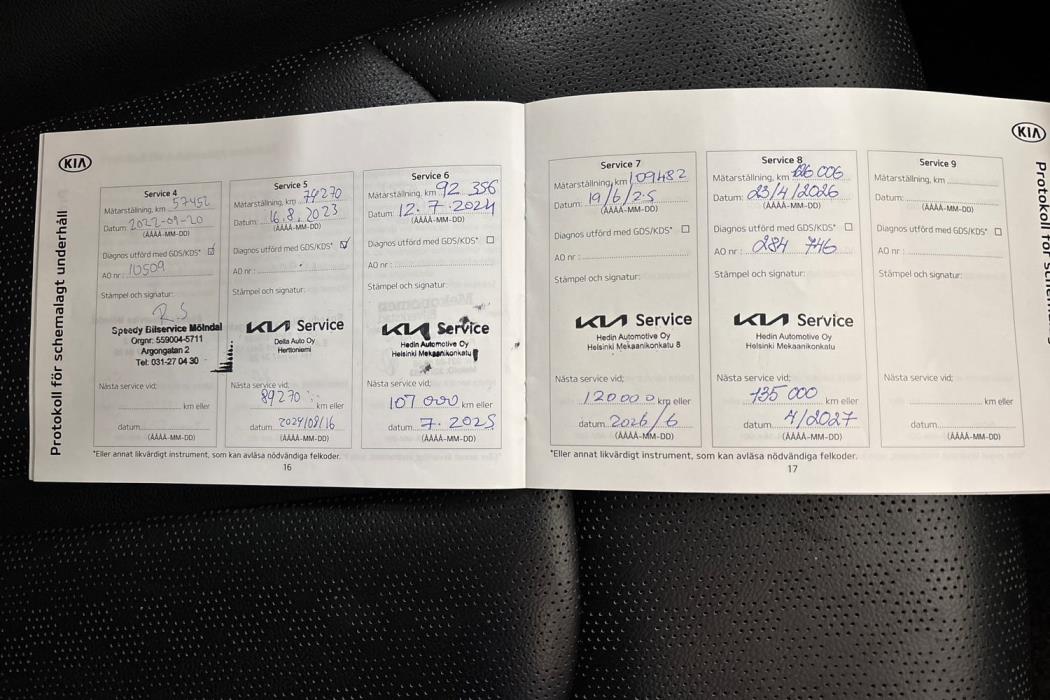 KIA
Protokoll för schemalagt underhåll
Service 4
Mätarställning, km 57452
Datum: 2022-09-20
(ÅÅÅÅ-MM-DD)
Diagnos utförd med GDS/KDS*
AO nr: 10509
Stämpel och signatur:
R.S
Speedy Bilservice Mölndal
Orgnr: 559004-5711
Argongatan 2
Tel: 031-27 04 30
Nästa service vid:
km eller
datum
(ÅÅÅÅ-MM-DD)
Service 5
Mätarställning, km 74270
Datum: 16.8.2023
(ÅÅÅÅ-MM-DD)
Diagnos utförd med GDS/KDS*
AO nr:
Stämpel och signatur:
KIA Service
Delta Auto Oy
Herttoniemi
Nästa service vid:
89270
km eller
datum 2024/08/16
(ÅÅÅÅ-MM-DD)
Service 6
Mätarställning, km 92 356
Datum: 12.7.2024
(ÅÅÅÅ-MM-DD)
Diagnos utförd med GDS/KDS*
AO nr:
Stämpel och signatur:
KIA Service
Hedin Automotive Oy
Helsinki Mekaanikonkatu
Nästa service vid:
107 000 km eller
datum 7.2025
(ÅÅÅÅ-MM-DD)
*Eller annat likvärdigt instrument, som kan avläsa nödvändiga felkoder.
16
Service 7
Mätarställning, km 109482
Datum: 19/6/25
(ÅÅÅÅ-MM-DD)
Diagnos utförd med GDS/KDS*
AO nr:
Stämpel och signatur:
KIA Service
Hedin Automotive Oy
Helsinki Mekaanikonkatu 8
Nästa service vid:
120000 km eller
datum 2026/6
(ÅÅÅÅ-MM-DD)
Service 8
Mätarställning, km 006
Datum: 23/4/2026
(ÅÅÅÅ-MM-DD)
Diagnos utförd med GDS/KDS*
AO nr: 284 746
Stämpel och signatur:
KIA Service
Hedin Automotive Oy
Helsinki Mekaanikonkatu
Nästa service vid:
135 000
km eller
datum 4/2027
(ÅÅÅÅ-MM-DD)
Service 9
Mätarställning, km
Datum:
(ÅÅÅÅ-MM-DD)
Diagnos utförd med GDS/KDS*
AO nr:
Stämpel och signatur:
Nästa service vid:
km eller
datum
(ÅÅÅÅ-MM-DD)
*Eller annat likvärdigt instrument, som kan avläsa nödvändiga felkoder.
17
KIA
Protokoll för